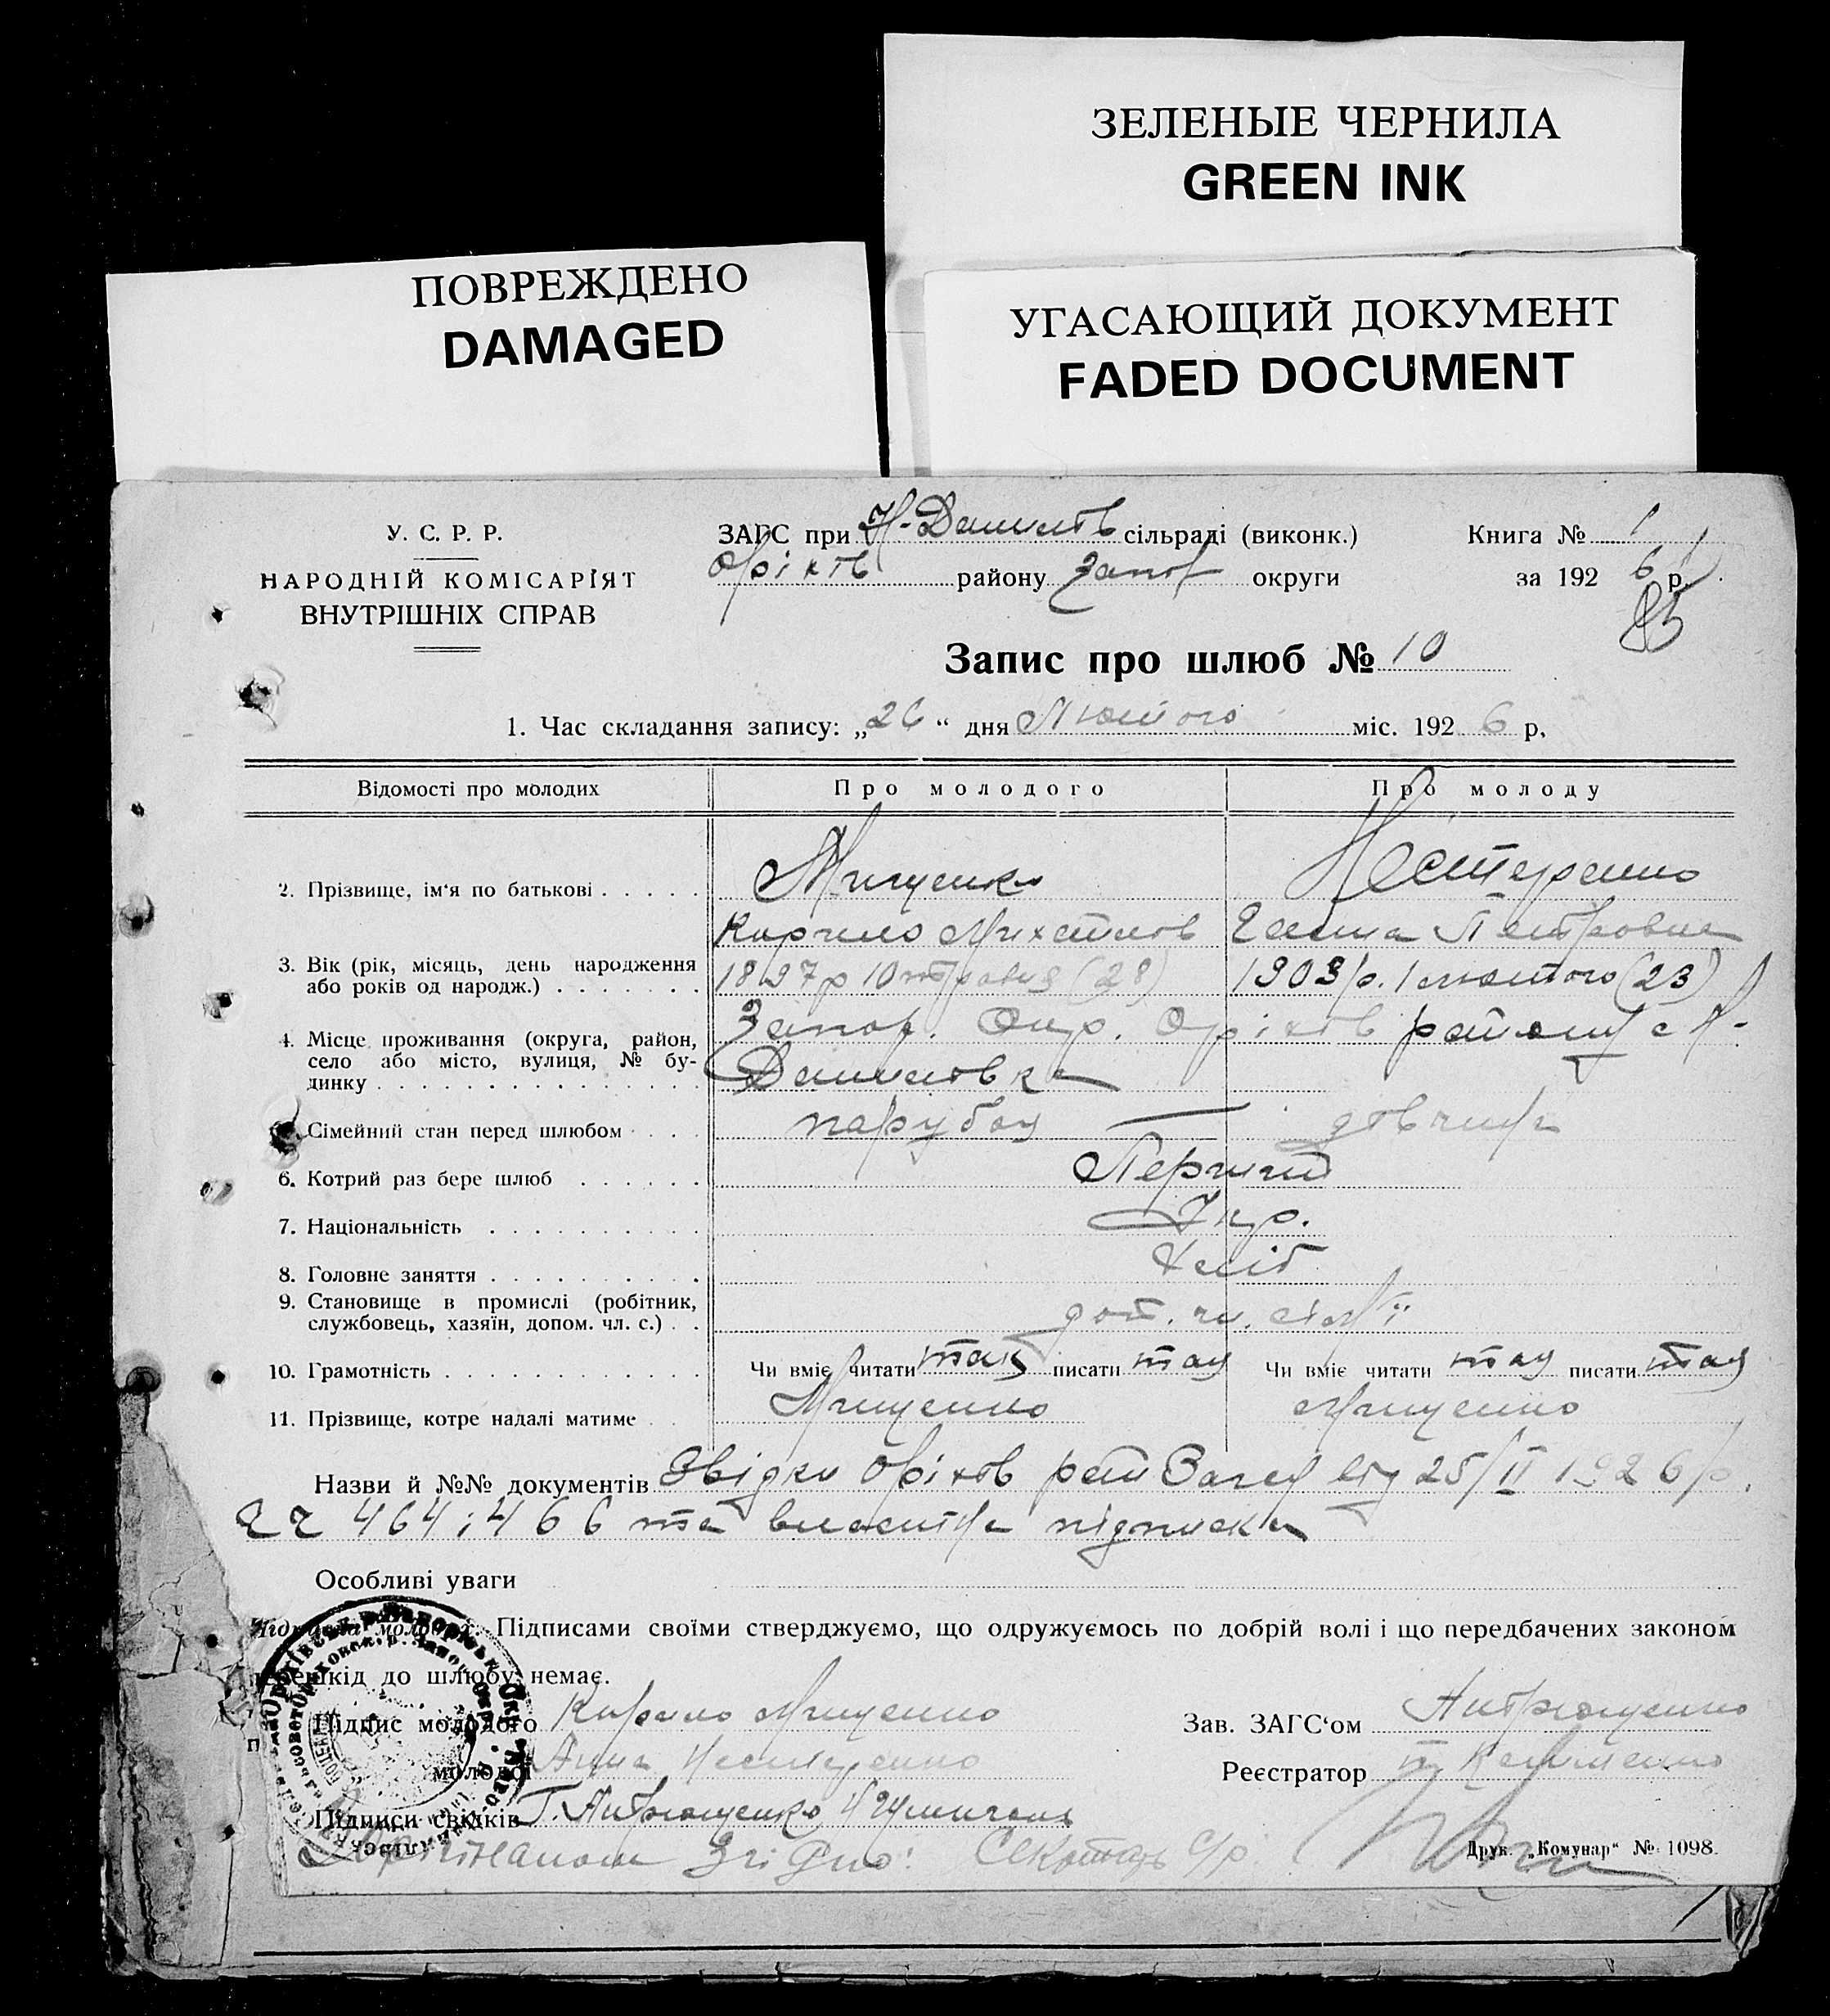 ЗЕЛЕНЫЕ ЧЕРНИЛА
GREEN INK
ПОВРЕЖДЕНО
DAMAGED
УГАСАЮЩИЙ ДОКУМЕНТ
FADED DOCUMENT
У. С. Р. Р.
НАРОДНІЙ КОМІСАРІЯТ
ВНУТРІШНІХ СПРАВ
ЗАГС при Н-Данилів сільраді (виконк.)
Оріхів району Запор округи
Книга № 1
за 192 6 р.
85
Запис про шлюб № 10
1. Час складання запису: „26“ дня Лютого міс. 192 6 р.
Відомості про молодих Про молодого Про молоду
2. Прізвище, ім'я по батькові Мищенко Нестеренко
Кирило Михайлов Ганна Петровна
3. Вік (рік, місяць, день народження або років од народж.) 1897р 10 травня (28) 1903 р. 1 лютого (23)
4. Місце проживання (округа, район, село або місто, вулиця, № будинку Запор. Окр. Оріхів району с Н-
Данилівка
Сімейний стан перед шлюбом парубок дівчина
6. Котрий раз бере шлюб Перший
7. Національність Укр.
8. Головне заняття Хліб
9. Становище в промислі (робітник, службовець, хазяїн, допом. чл. с.) доп. чл. сім'ї
10. Грамотність Чи вміє читати так писати так Чи вміє читати так писати так
11. Прізвище, котре надалі матиме Мищенко Мищенко
Назви й №№ документів Звідки Оріхів рай Загсу від 25/II 1926 р.
464 i 466 та власна підписка
Особливі уваги
Підписами своїми стверджуємо, що одружуємось по добрій волі і що передбачених законом
перешкід до шлюбу немає.
Підпис молодого Кирило Мищенко
Зав. ЗАГС'ом Андрющенко
молодої Анна Нестеренко
Реєстратор Клименко
Підписи свідків Г. Андрющенко
Орігіналом Згідно: Секретарь с/р
Друк. „Комунар“ № 1098.